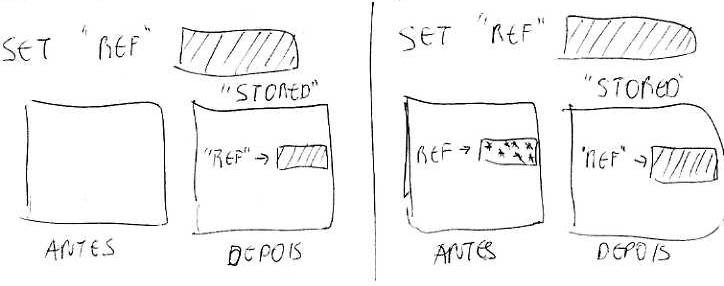 SET "REF"
"STORED"
"REF" →
ANTES
DEPOIS
SET "REF"
"STORED"
REF →
"REF" →
ANTES
DEPOIS